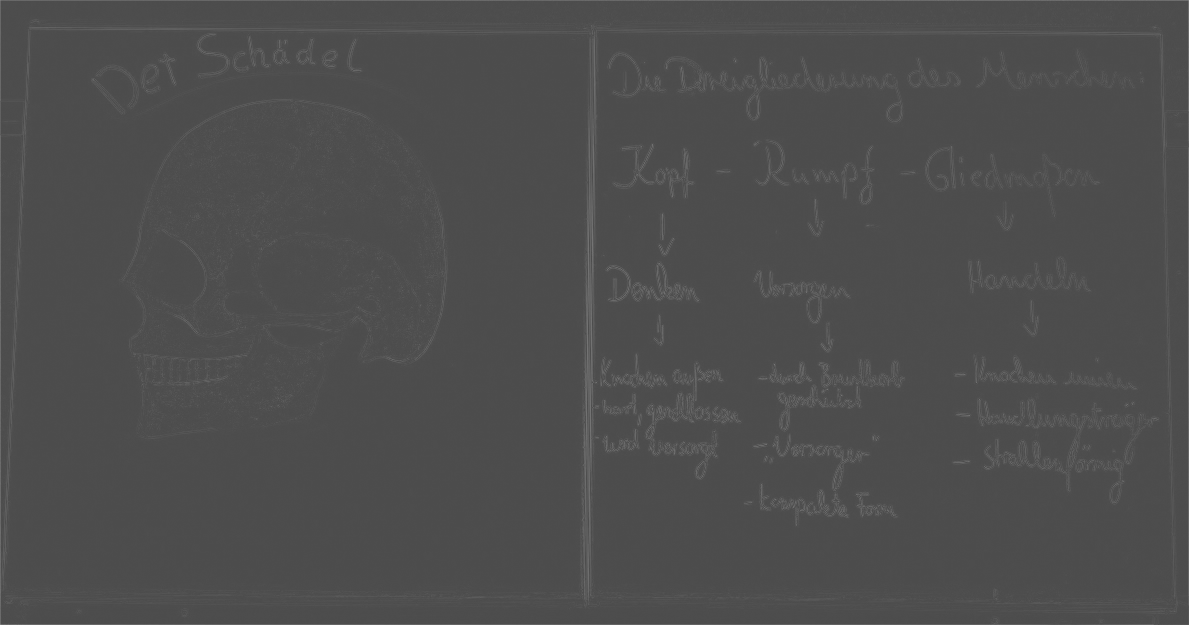 Der Schädel
Die Dreigliederung des Menschen:
Kopf - Rumpf - Gliedmaßen
↓ ↓ ↓
Denken Versorgen Handeln
↓ ↓ ↓
- Knochen außen
- hart, geschlossen
- wird versorgt
- durch Brustkorb
geschützt
- "Versorger"
- kompakte Form
- Knochen innen
- Handlungsträger
- Strahlenförmig